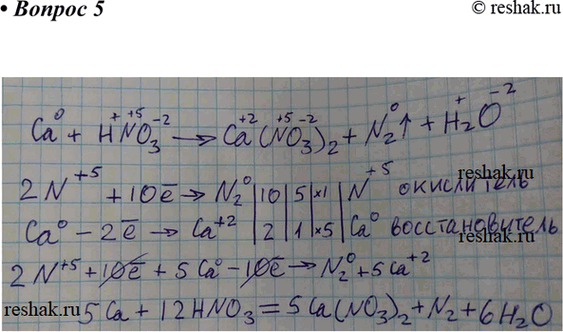 • Вопрос 5
© reshak.ru
Ca⁰ + H⁺N⁺⁵O₃⁻² → Ca⁺²(N⁺⁵O₃⁻²)₂ + N₂⁰↑ + H₂⁺O⁻²
reshak.ru
2N⁺⁵ + 10ē → N₂⁰ | 10 | 5 | ×1 | N⁺⁵ окислитель
Ca⁰ – 2ē → Ca⁺² | 2 | 1 | ×5 | Ca⁰ восстановитель
reshak.ru
2N⁺⁵ + 10ē + 5Ca⁰ – 10ē → N₂⁰ + 5Ca⁺²
reshak.ru
5Ca + 12HNO₃ = 5Ca(NO₃)₂ + N₂ + 6H₂O